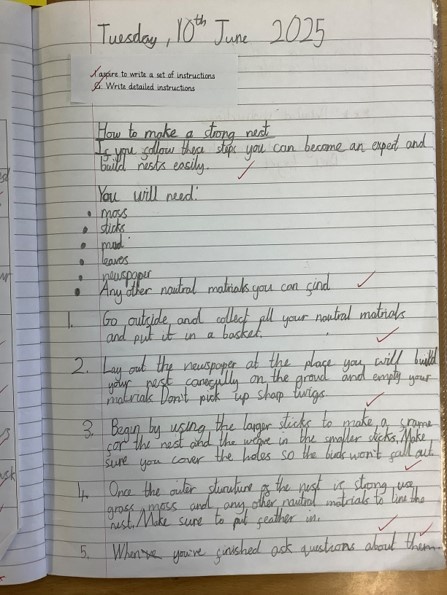 Tuesday, 10th June 2025
I aspire to write a set of instructions
Write detailed instructions
How to make a strong nest
If you follow these steps you can become an expert and
build nests easily.
You will need:
• moss
• sticks
• mud
• leaves
• newspaper
• Any other nautral matrials you can find
1. Go outside and collect all your nautral matrials
and put it in a basket.
2. Lay out the newspaper at the place you will build
your nest carefully on the groud and empty your
materials Don't pick up sharp twigs.
3. Begin by using the larger sticks to make a frame
for the nest and the weave in the smaller sticks. Make
sure you cover the holes so the birds won't fall out.
4. Once the outer structure of the nest is strong, use
grass, moss and any other nautral materials to line the
nest. Make sure to put feather in.
5. When you're finished ask questions about them